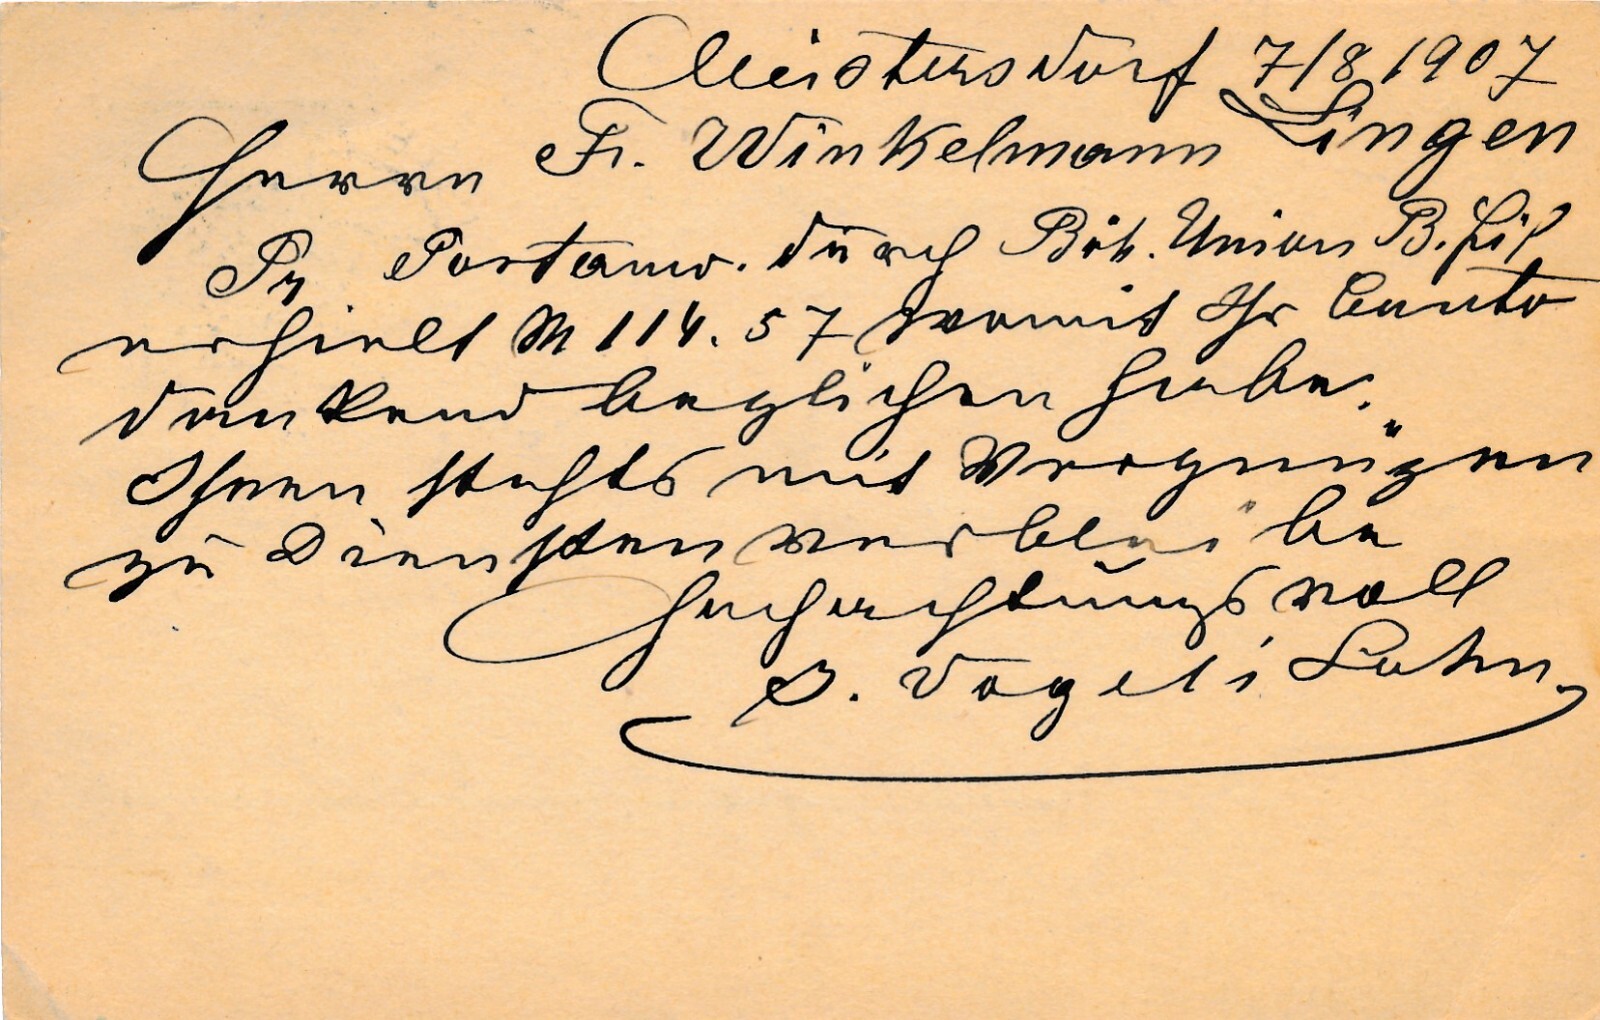 Meistersdorf 7/8 1907
Herrn Fr. Winkelmann Lingen
Pr Postanw. durch Böh. Union B. Fil
erhielt M 114.57 womit Ihr Conto
dankend beglichen habe.
Ihnen stehts mit Vergnügen
zu Diensten verbleibe
Hochachtungsvoll
Vogels Sohn.